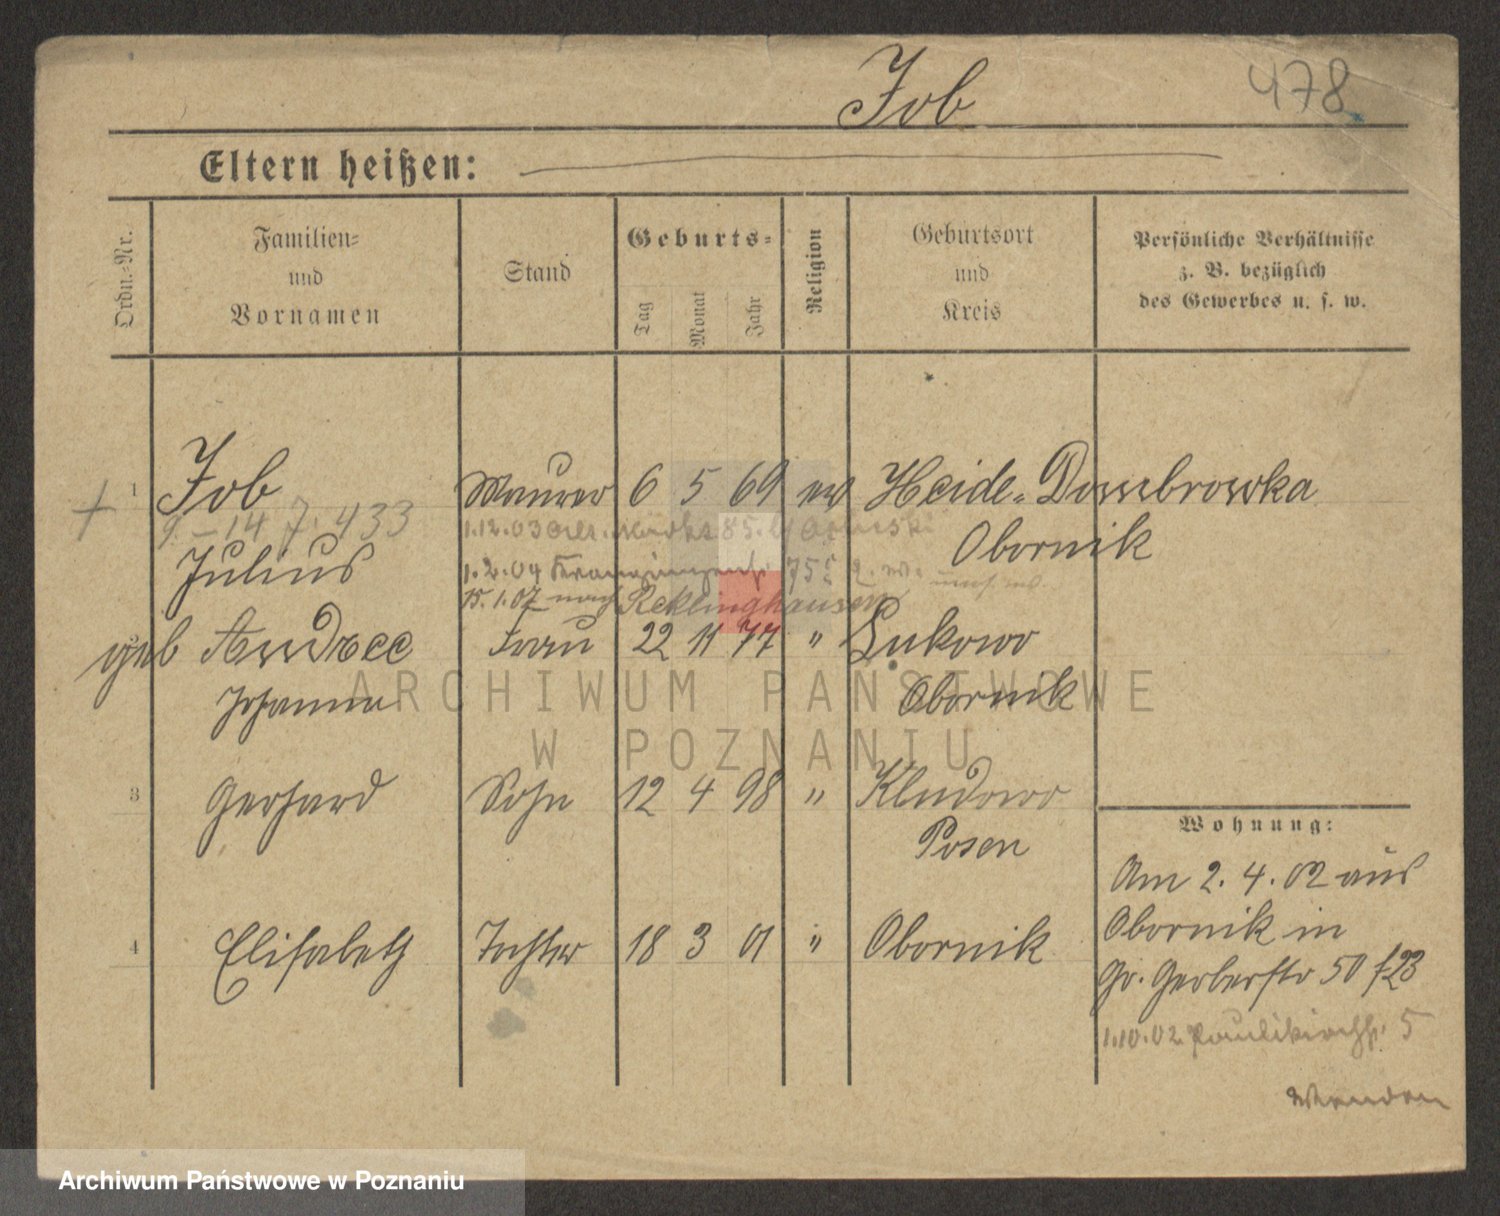 Job 478
Eltern heißen:
Ordn.-Nr.
Familien-
und
Vornamen
Stand
Geburts-
Tag
Monat
Jahr
Religion
Geburtsort
und
Kreis
Persönliche Verhältnisse
z. B. bezüglich
des Gewerbes u. s. w.
1 Job Maurer 6 5 69 ev Heide-Dombrowka
9.-14 7. 433
1.12.03
Julius Obornik
1.2.04
15.1.07 nach Reklinghausen
geb Andree Frau 22 11 77 " Lukowo
Johanna Obornik
3 Gerhard Sohn 12 4 98 " Kludowo
Posen
Wohnung:
Am 2.4.02 aus
4 Elisabeth Tochter 18 3 01 " Obornik
Obornik in
Gr. Gerberstr 50 f23
1.10.02 Paulikirchstr. 5
ARCHIWUM PAŃSTWOWE
W POZNANIU
Archiwum Państwowe w Poznaniu